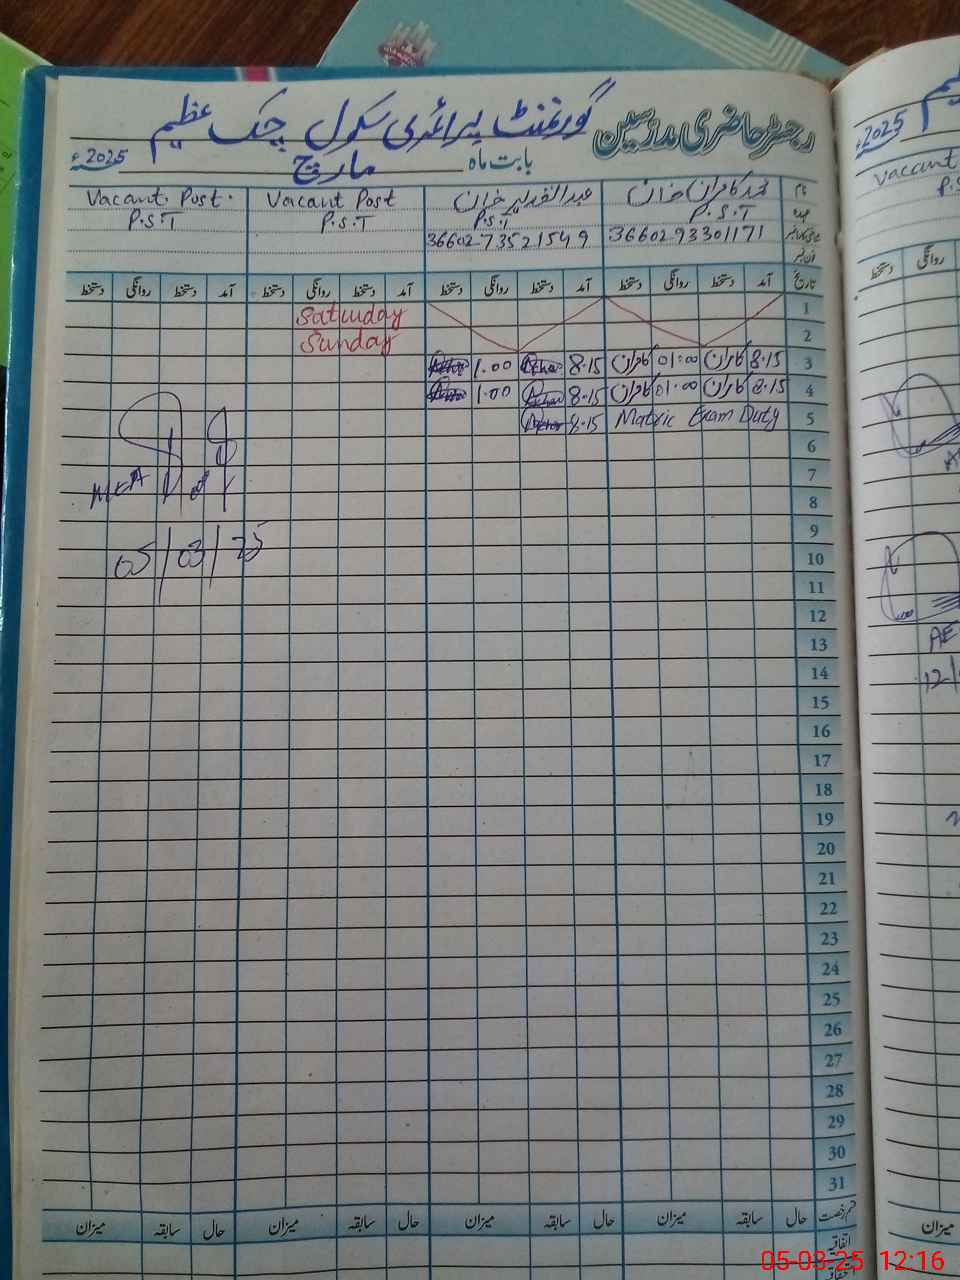 رجسٹر حاضری مدرسین گورنمنٹ پرائمری سکول چک عظیم
بابت ماہ مارچ 2025ء
نام محمد کامران خان عبدالقدیر خان Vacant Post Vacant Post.
عہدہ P.S.T P.S.T P.S.T P.S.T
3660293301171 3660273521549
تاریخ آمد دستخط روانگی دستخط آمد دستخط روانگی دستخط آمد دستخط روانگی دستخط آمد دستخط روانگی دستخط
1 Saturday
2 Sunday
3 8.15 کامران 01:00 کامران 8.15 1.00
4 8.15 کامران 01.00 کامران 8.15 1.00
5 Matric Exam Duty 8.15
6
7
MEA
8
9
05/03/25
10
11
12
13
14
15
16
17
18
19
20
21
22
23
24
25
26
27
28
29
30
31
قسم رخصت حال سابقہ میزان حال سابقہ میزان حال سابقہ میزان حال سابقہ میزان
اتفاقیہ
2025ء
Vacant
دستخط روانگی
AE
12/
میزان
05-03-25 12:16